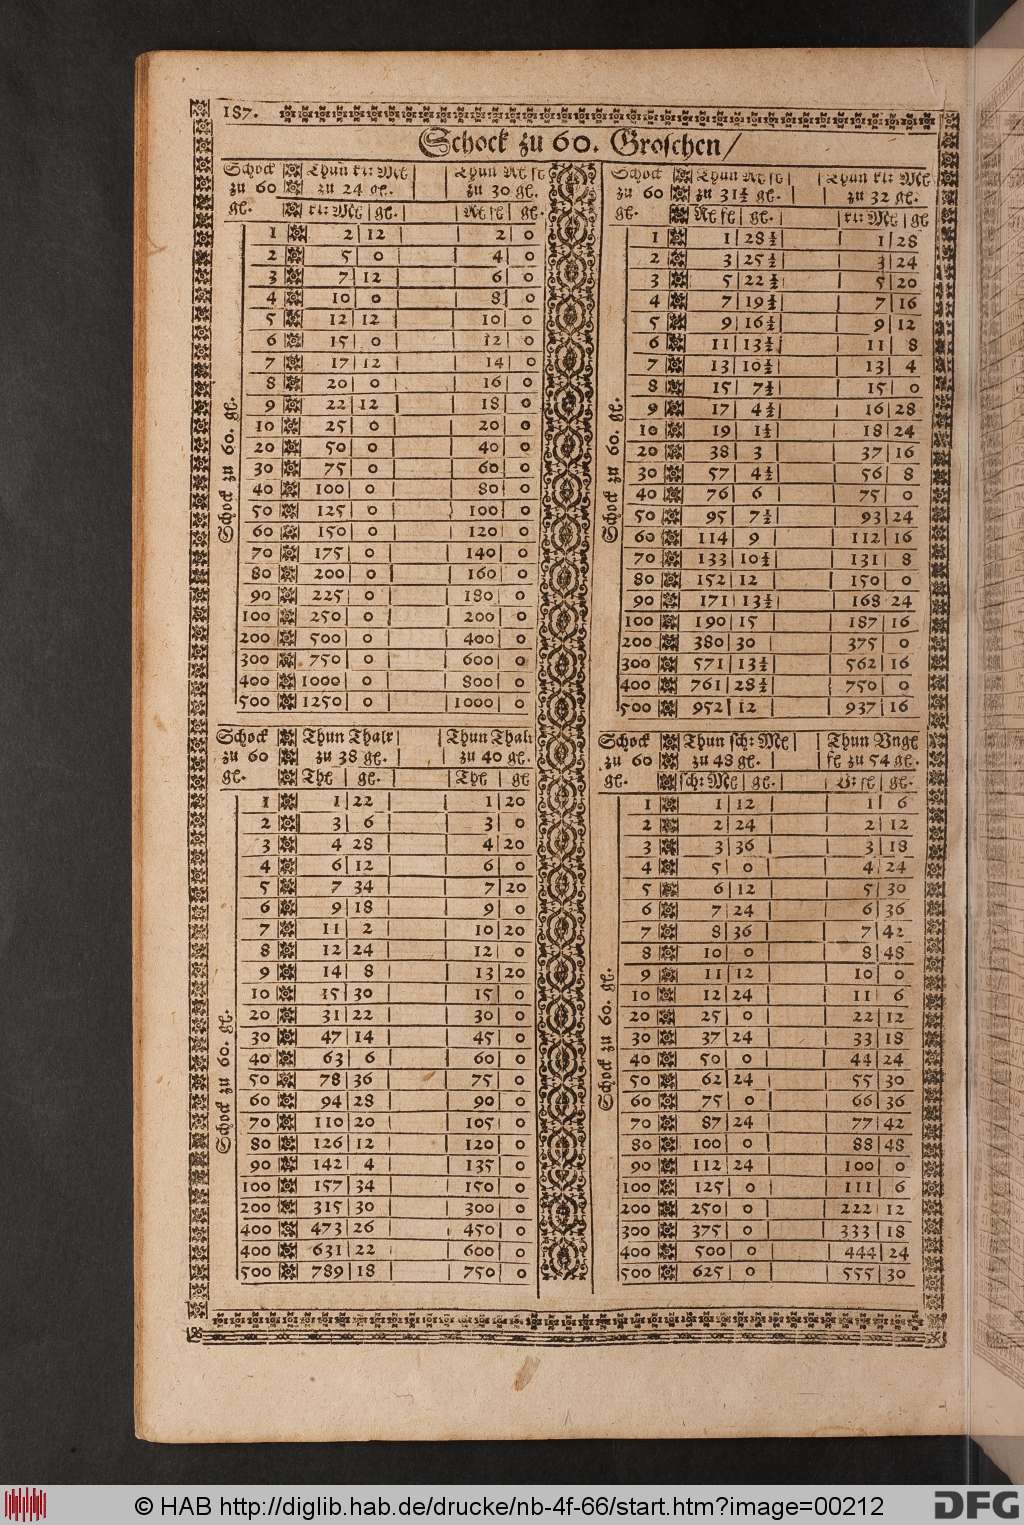 187.
Schock zu 60. Groschen/
Schock Thun rt: Mł Thun Rł fł
zu 60 zu 24 gł. zu 30 gł.
gł. rt: Mł gł. Rł fł gł.
1 2 12 2 0
2 5 0 4 0
3 7 12 6 0
4 10 0 8 0
5 12 12 10 0
6 15 0 12 0
7 17 12 14 0
8 20 0 16 0
9 22 12 18 0
10 25 0 20 0
20 50 0 40 0
30 75 0 60 0
40 100 0 80 0
50 125 0 100 0
60 150 0 120 0
70 175 0 140 0
80 200 0 160 0
90 225 0 180 0
100 250 0 200 0
200 500 0 400 0
300 750 0 600 0
400 1000 0 800 0
500 1250 0 1000 0
Schock zu 60. gł.
Schock Thun Rł fł Thun rt: Mł
zu 60 zu 31½ gł. zu 32 gł.
gł. Rł fł gł. rt: Mł gł
1 1 28½ 1 28
2 3 25½ 3 24
3 5 22½ 5 20
4 7 19½ 7 16
5 9 16½ 9 12
6 11 13½ 11 8
7 13 10½ 13 4
8 15 7½ 15 0
9 17 4½ 16 28
10 19 1½ 18 24
20 38 3 37 16
30 57 4½ 56 8
40 76 6 75 0
50 95 7½ 93 24
60 114 9 112 16
70 133 10½ 131 8
80 152 12 150 0
90 171 13½ 168 24
100 190 15 187 16
200 380 30 375 0
300 571 13½ 562 16
400 761 28½ 750 0
500 952 12 937 16
Schock zu 60. gł.
Schock Thun Thalr Thun Thalr
zu 60 zu 38 gł. zu 40 gł.
gł. Thł gł. Thł gł
1 1 22 1 20
2 3 6 3 0
3 4 28 4 20
4 6 12 6 0
5 7 34 7 20
6 9 18 9 0
7 11 2 10 20
8 12 24 12 0
9 14 8 13 20
10 15 30 15 0
20 31 22 30 0
30 47 14 45 0
40 63 6 60 0
50 78 36 75 0
60 94 28 90 0
70 110 20 105 0
80 126 12 120 0
90 142 4 135 0
100 157 34 150 0
200 315 30 300 0
400 473 26 450 0
400 631 22 600 0
500 789 18 750 0
Schock zu 60. gł.
Schock Thun sch: Mł Thun Vngł
zu 60 zu 48 gł. fł zu 54 gł.
gł. sch: Mł gł. V: fł gł.
1 1 12 1 6
2 2 24 2 12
3 3 36 3 18
4 5 0 4 24
5 6 12 5 30
6 7 24 6 36
7 8 36 7 42
8 10 0 8 48
9 11 12 10 0
10 12 24 11 6
20 25 0 22 12
30 37 24 33 18
40 50 0 44 24
50 62 24 55 30
60 75 0 66 36
70 87 24 77 42
80 100 0 88 48
90 112 24 100 0
100 125 0 111 6
200 250 0 222 12
300 375 0 333 18
400 500 0 444 24
500 625 0 555 30
Schock zu 60. gł.
© HAB http://diglib.hab.de/drucke/nb-4f-66/start.htm?image=00212
DFG